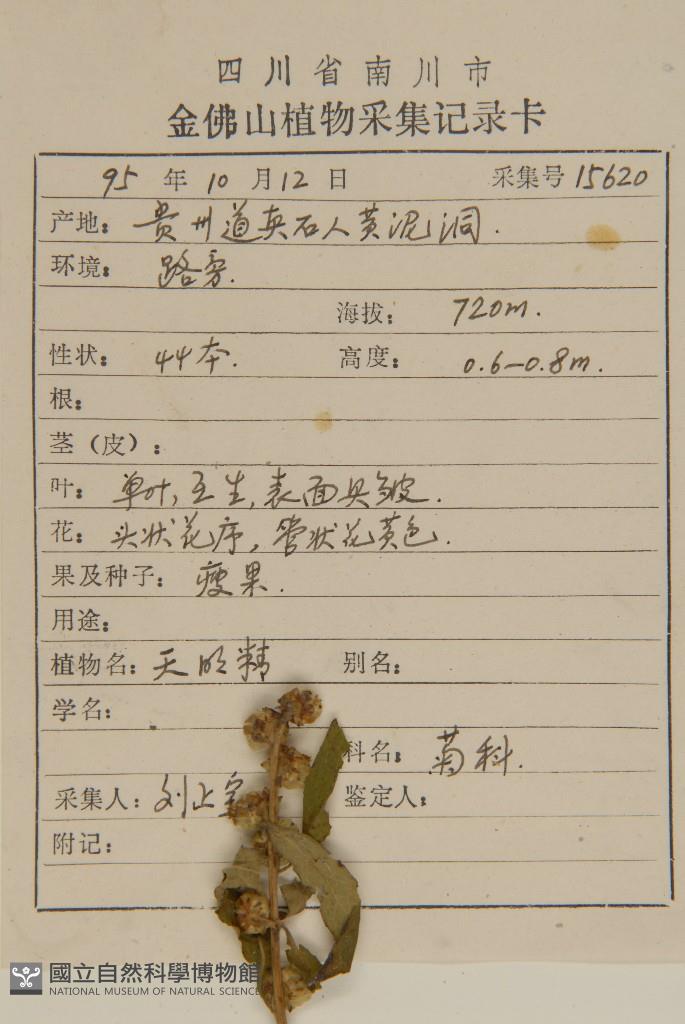 四川省南川市
金佛山植物采集记录卡
95 年 10 月 12 日 采集号 15620
产地: 贵州道真石人黄泥洞.
环境: 路旁.
海拔: 720m.
性状: 草本. 高度: 0.6—0.8m.
根:
茎(皮):
叶: 单叶, 互生, 表面具皱.
花: 头状花序, 管状花黄色.
果及种子: 瘦果.
用途:
植物名: 天明精 别名:
学名:
科名: 菊科.
采集人: 刘正宇 鉴定人:
附记:
國立自然科學博物館
NATIONAL MUSEUM OF NATURAL SCIENCE